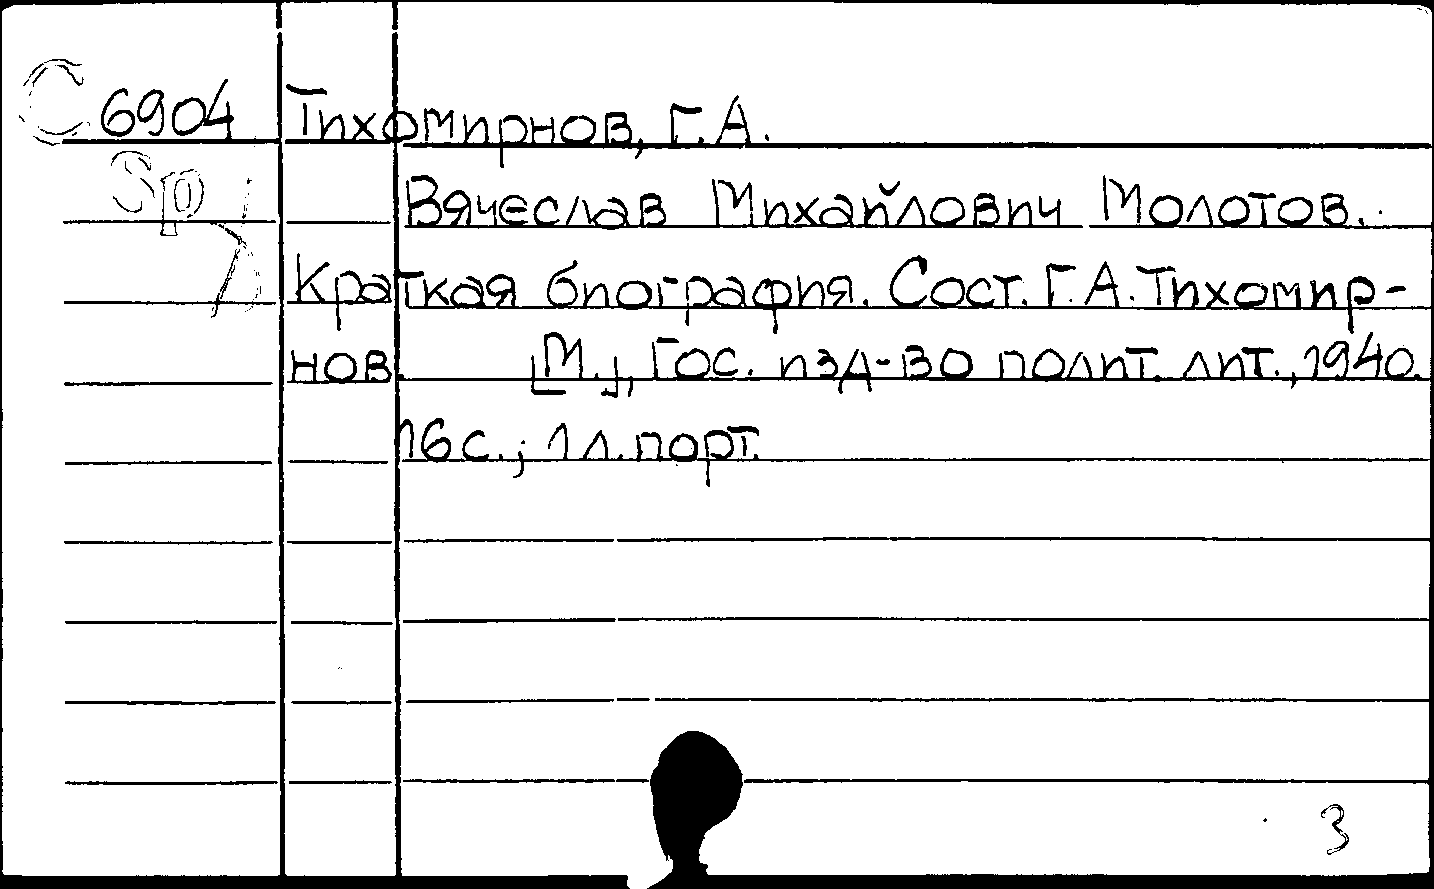 С 6904 Тихомирнов, Г.А.
Sp Вячеслав Михайлович Молотов.
Краткая биография. Сост. Г.А. Тихомир-
нов. [М.], Гос. изд-во полит. лит., 1940.
16 с.; 1 л. порт.
3